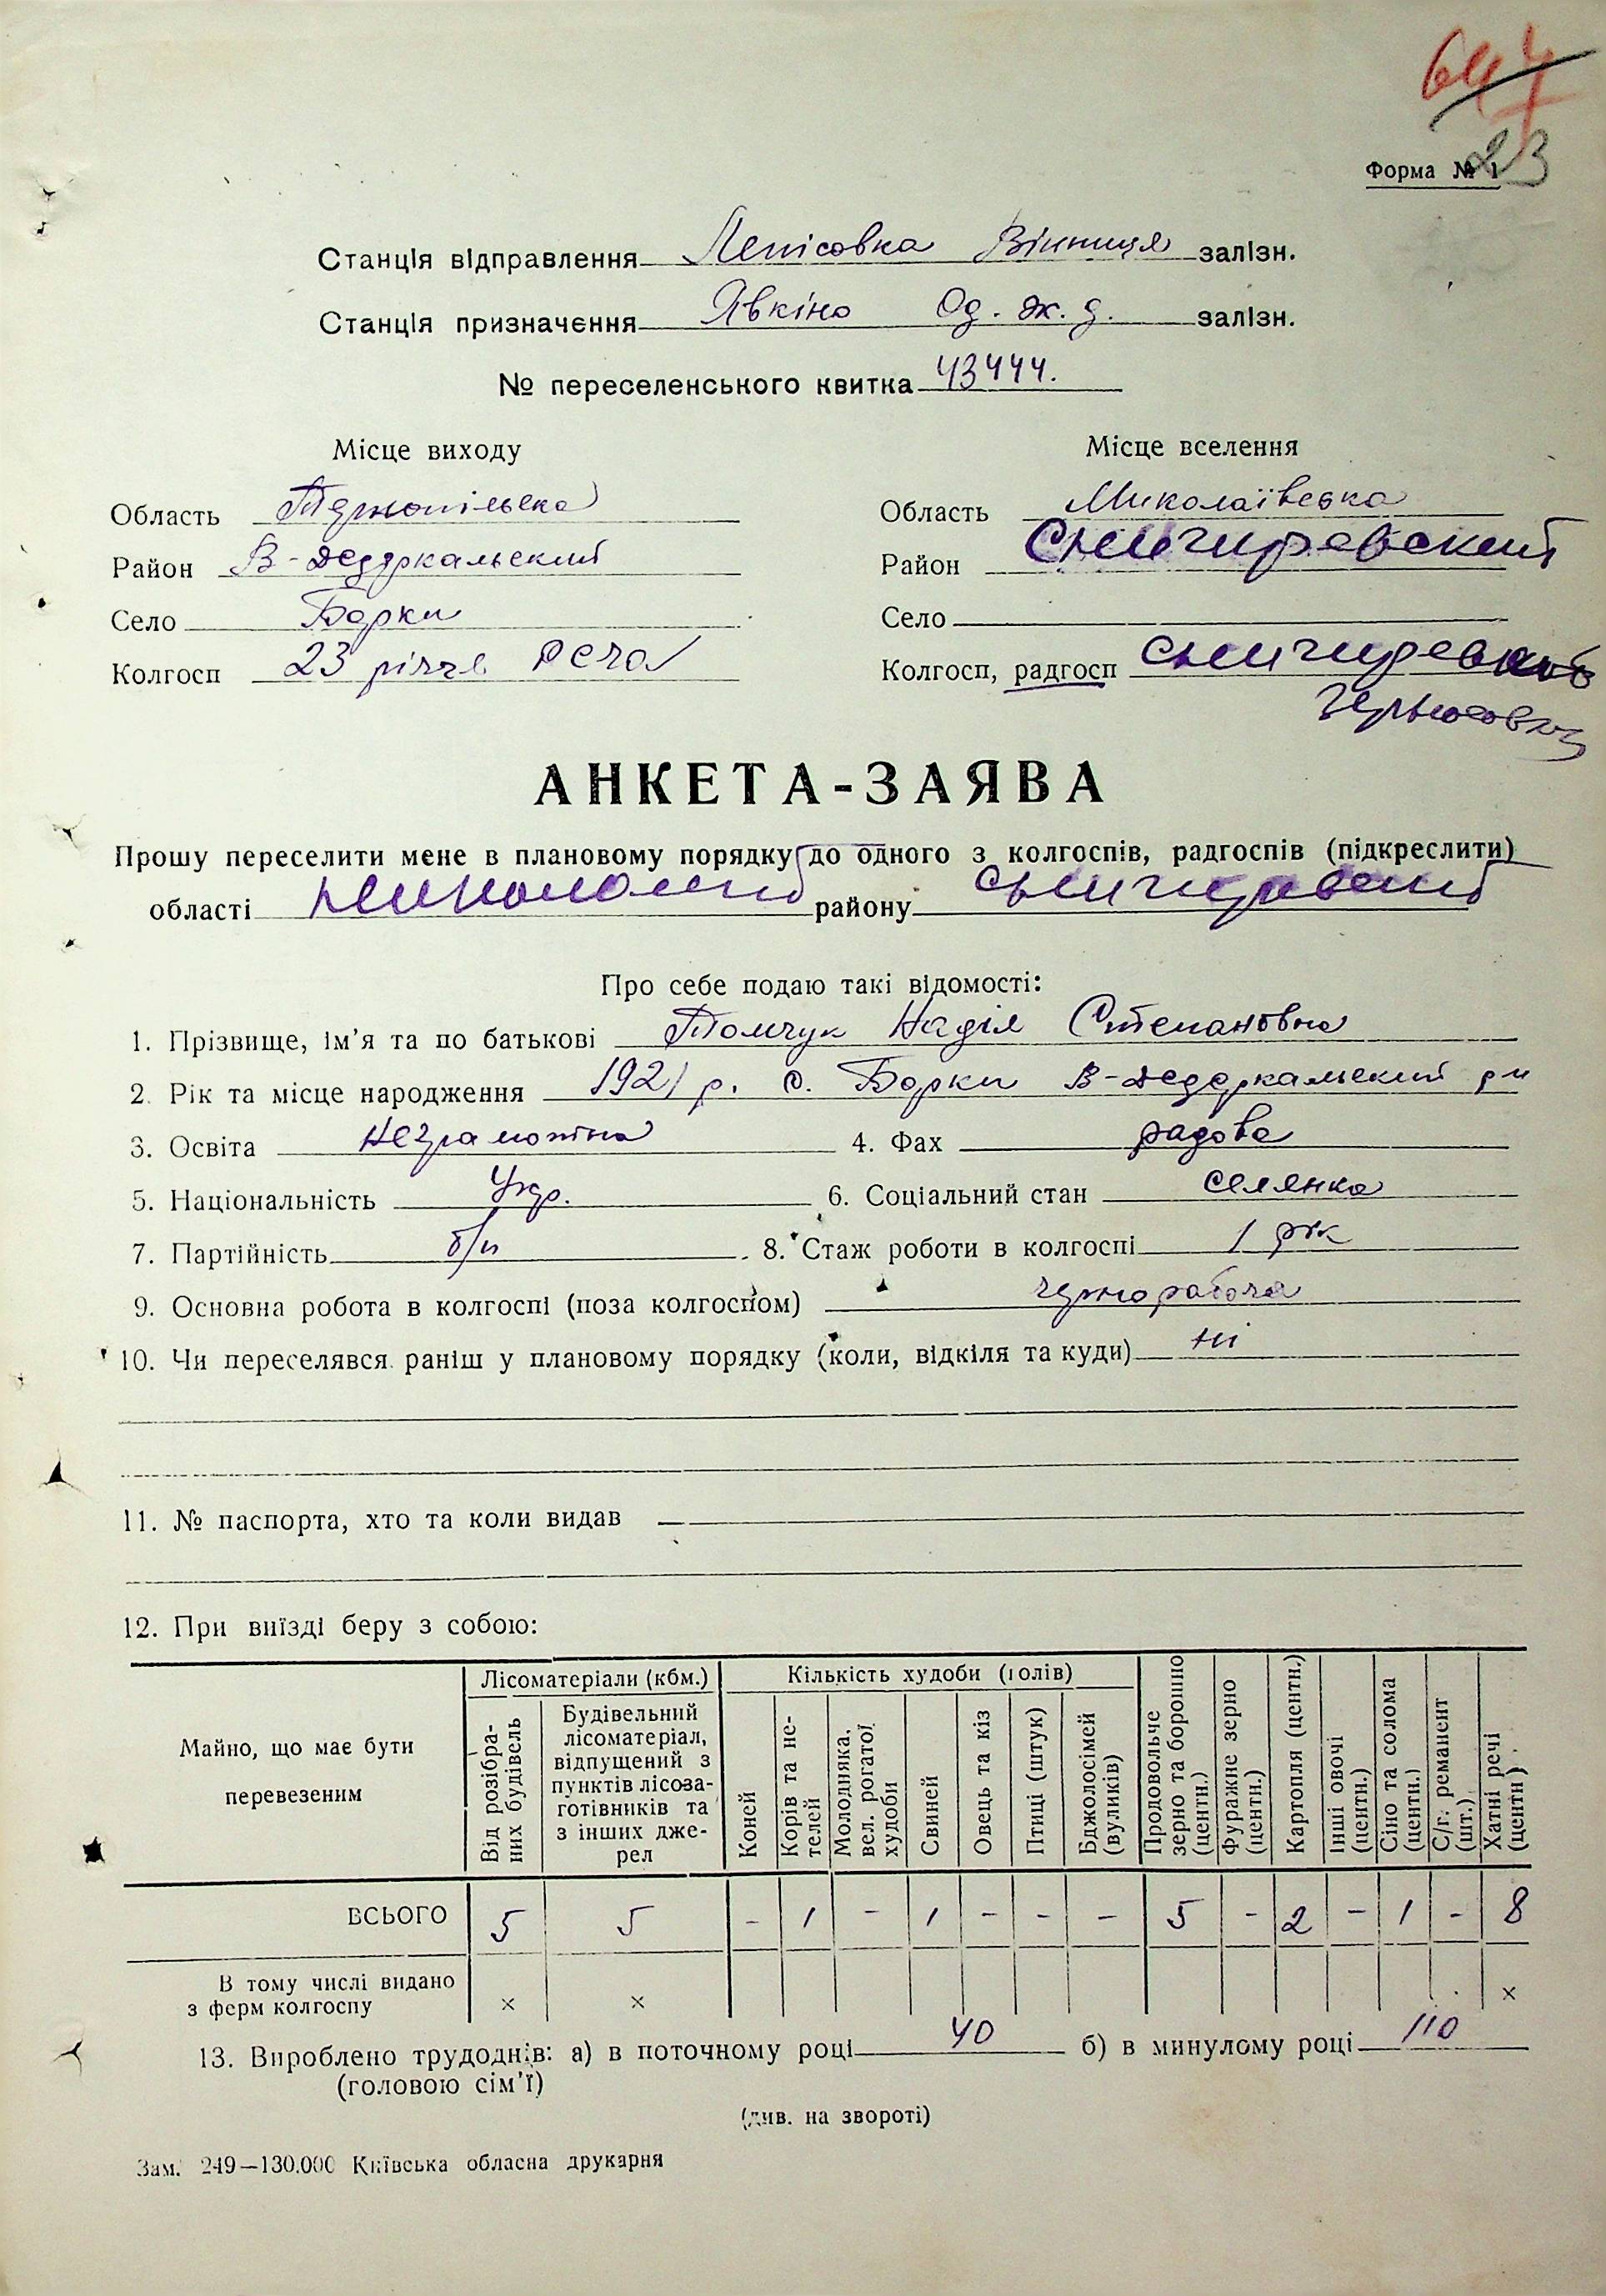 647
23
Форма № 1
Станція відправлення Лепісовка Вінниця залізн.
Станція призначення Явкіно Од. ж. д. залізн.
№ переселенського квитка 43444.
Місце виходу
Місце вселення
Область Тернопільська
Область Миколаївська
Район В-Дедеркальский
Район Снигиревский
Село Борки
Село
Колгосп 23 річчя РСЧА
Колгосп, радгосп Снигиревский
АНКЕТА-ЗАЯВА
Прошу переселити мене в плановому порядку до одного з колгоспів, радгоспів (підкреслити)
області району Снигиревский
Про себе подаю такі відомості:
1. Прізвище, ім'я та по батькові Томчук Надія Степановна
2. Рік та місце народження 1921 р. с. Борки В-Дедеркальский р-н
3. Освіта неграмотна 4. Фах рядова
5. Національність Укр. 6. Соціальний стан селянка
7. Партійність б/п 8. Стаж роботи в колгоспі 1 рік
9. Основна робота в колгоспі (поза колгоспом) чернорабоча
10. Чи переселявся раніш у плановому порядку (коли, відкіля та куди) ні
11. № паспорта, хто та коли видав —
12. При виїзді беру з собою:
Майно, що має бути перевезеним
Лісоматеріали (кбм.)
Від розібра-
них будівель
Будівельний
лісоматеріал,
відпущений з
пунктів лісоза-
готівників та
з інших дже-
рел
Кількість худоби (голів)
Коней
Корів та не-
телей
Молодняка,
вел. рогатої
худоби
Свиней
Овець та кіз
Птиці (штук)
Бджолосімей
(вуликів)
Продовольче
зерно та борошно
(центн.)
Фуражне зерно
(центн.)
Картопля (центн.)
Інші овочі
(центн.)
Сіно та солома
(центн.)
С/г. реманент
(шт.)
Хатні речі
(центн.)
ВСЬОГО 5 5 - 1 - 1 - - - 5 - 2 - 1 - 8
В тому числі видано
з ферм колгоспу × × ×
13. Вироблено трудоднів: а) в поточному році 40 б) в минулому році 110
(головою сім'ї)
(див. на звороті)
Зам. 249—130.000 Київська обласна друкарня